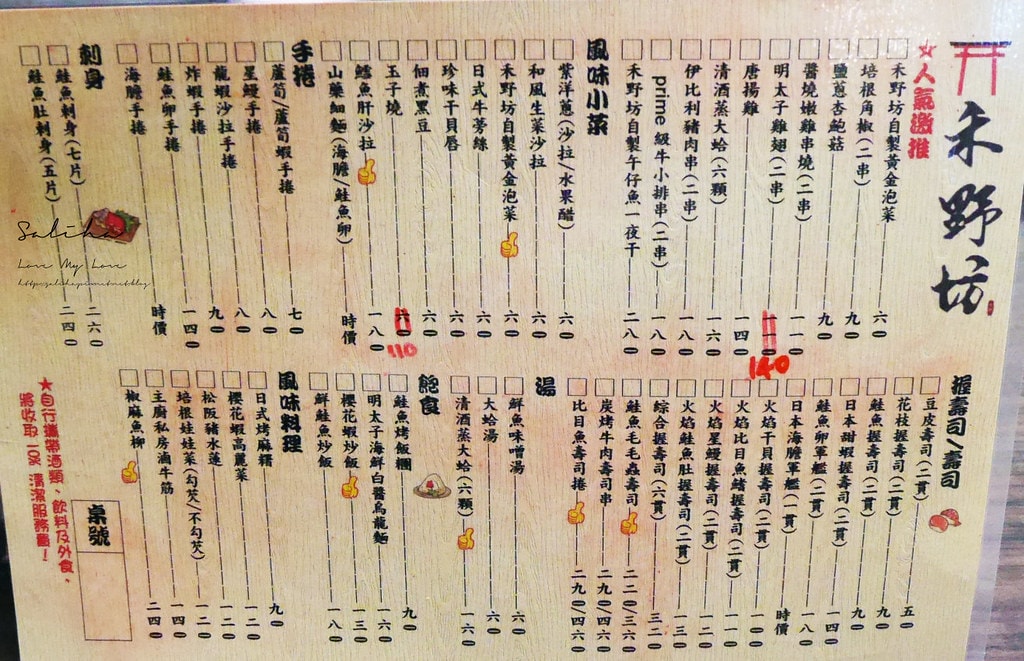 禾野坊
★人氣激推
禾野坊自製黃金泡菜 六0
培根角椒(二串) 九0
鹽蔥杏鮑菇 九0
醬燒嫩雞串燒(二串) 一一0
明太子雞翅(二串) 一一0 140
唐揚雞 一四0
清酒蒸大蛤(六顆) 一六0
伊比利豬肉串(二串) 一八0
prime級牛小排串(二串) 一八0
禾野坊自製午仔魚一夜干 二八0
風味小菜
紫洋蔥(沙拉/水果醋) 六0
和風生菜沙拉 六0
禾野坊自製黃金泡菜 六0
日式牛蒡絲 六0
珍味干貝唇 六0
佃煮黑豆 六0
玉子燒 六0 110
鱈魚肝沙拉 一八0
山藥細麵(海膽/鮭魚卵) 時價
手捲
蘆筍/蘆筍蝦手捲 七0
星鰻手捲 八0
龍蝦沙拉手捲 八0
炸蝦手捲 九0
鮭魚卵手捲 一四0
海膽手捲 時價
刺身
鮭魚刺身(七片) 二六0
鮭魚肚刺身(五片) 二四0
握壽司/壽司
豆皮壽司(二貫) 五0
花枝握壽司(二貫) 九0
鮭魚握壽司(二貫) 九0
日本甜蝦握壽司(二貫) 九0
鮭魚卵軍艦(二貫) 一四0
日本海膽軍艦(一貫) 時價
火焰干貝握壽司(二貫) 一四0
火焰比目魚鰭握壽司(二貫) 一一0
火焰星鰻握壽司(二貫) 一二0
火焰鮭魚肚握壽司(二貫) 一三0
綜合握壽司(六貫) 三二0
鮭魚毛毛蟲壽司 二二0/三六0
炭烤牛肉壽司串 二九0/四六0
比目魚壽司捲 二九0/四六0
湯
鮮魚味噌湯 六0
大蛤湯 六0
清酒蒸大蛤(六顆) 一六0
飽食
鮭魚烤飯糰 九0
明太子海鮮白醬烏龍麵 一六0
櫻花蝦炒飯 一三0
鮮鮭魚炒飯 一八0
風味料理
日式烤麻糬 九0
櫻花蝦高麗菜 一二0
松阪豬水蓮 一二0
培根娃娃菜(勾芡/不勾芡) 一二0
主廚私房滷牛筋 一四0
椒麻魚柳 二四0
桌號
★自行攜帶酒類、飲料及外食、
將收取 10% 清潔服務費!
Saliha
Love My Love